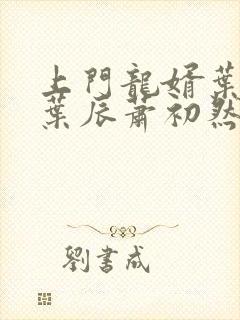 上門龍婿葉
葉辰蕭初然
劉書成